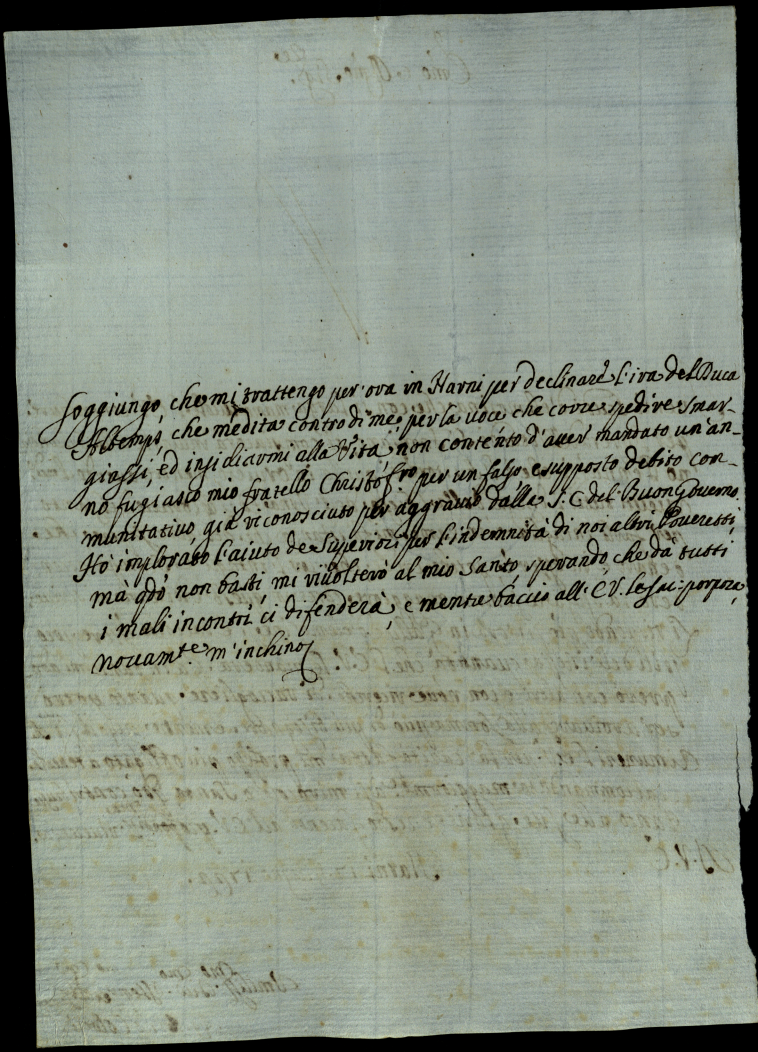 Soggiungo, che mi trattengo per ora in Narni per declinare l'ira del Duca
Altemps, che medita contro di me, per la voce che corre spedire smar-
giassi, ed insidiarmi alla Vita, non contento d'aver mandato un'an-
no fugiasco mio fratello Christof.ro per un falso e supposto debito com-
munitativo, già riconosciuto per aggravio dalla S. C. del Buon Governo.
Hò implorato l'aiuto de Superiori per l'indemnità di noi altri Poveretti,
mà qdo non basti mi rivolterò al mio Santo sperando, che da tutti
i mali incontri ci difenderà, e mentre baccio all' E.V. le sac: porpora,
novam.te m'inchino